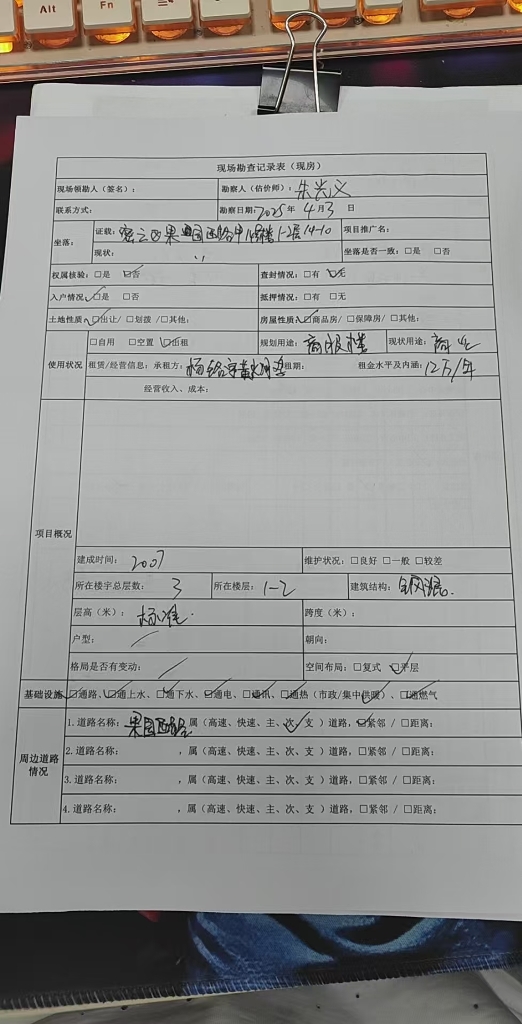 Alt
Fn
现场勘查记录表（现房）
现场领勘人（签名）： 勘察人（估价师）：朱兴义
联系方式： 勘察日期：2025年 4月3 日
坐落： 证载：密云区果园西路甲 楼1-2层14-10 项目推广名：
现状： 〃 坐落是否一致：□是 □否
权属核验：□是 ☑否 查封情况：□有 ☑无
入户情况：☑是 □否 抵押情况：□有 □无
土地性质：☑出让/ □划拨 /□其他： 房屋性质：☑商品房/ □保障房/ □其他：
使用状况 □自用 □空置 ☑出租 规划用途：商服楼 现状用途：商业
租赁/经营信息：承租方：杨铭宇黄焖鸡 租期： 租金水平及内涵：12万/年
经营收入、成本：
项目概况
建成时间：2007 维护状况：□良好 □一般 □较差
所在楼宇总层数：3 所在楼层：1-2 建筑结构：钢混.
层高（米）：标准. 跨度（米）：
户型：/ 朝向：
格局是否有变动：/ 空间布局：□复式 ☑平层
基础设施 ☑通路、☑通上水、☑通下水、☑通电、☑通讯、☑通热（市政/集中供暖）、☑通燃气
周边道路情况 1.道路名称：果园西路，属（高速、快速、主、次、支）道路，☑紧邻 / □距离：
2.道路名称： ，属（高速、快速、主、次、支）道路，□紧邻 / □距离：
3.道路名称： ，属（高速、快速、主、次、支）道路，□紧邻 / □距离：
4.道路名称： ，属（高速、快速、主、次、支）道路，□紧邻 / □距离：